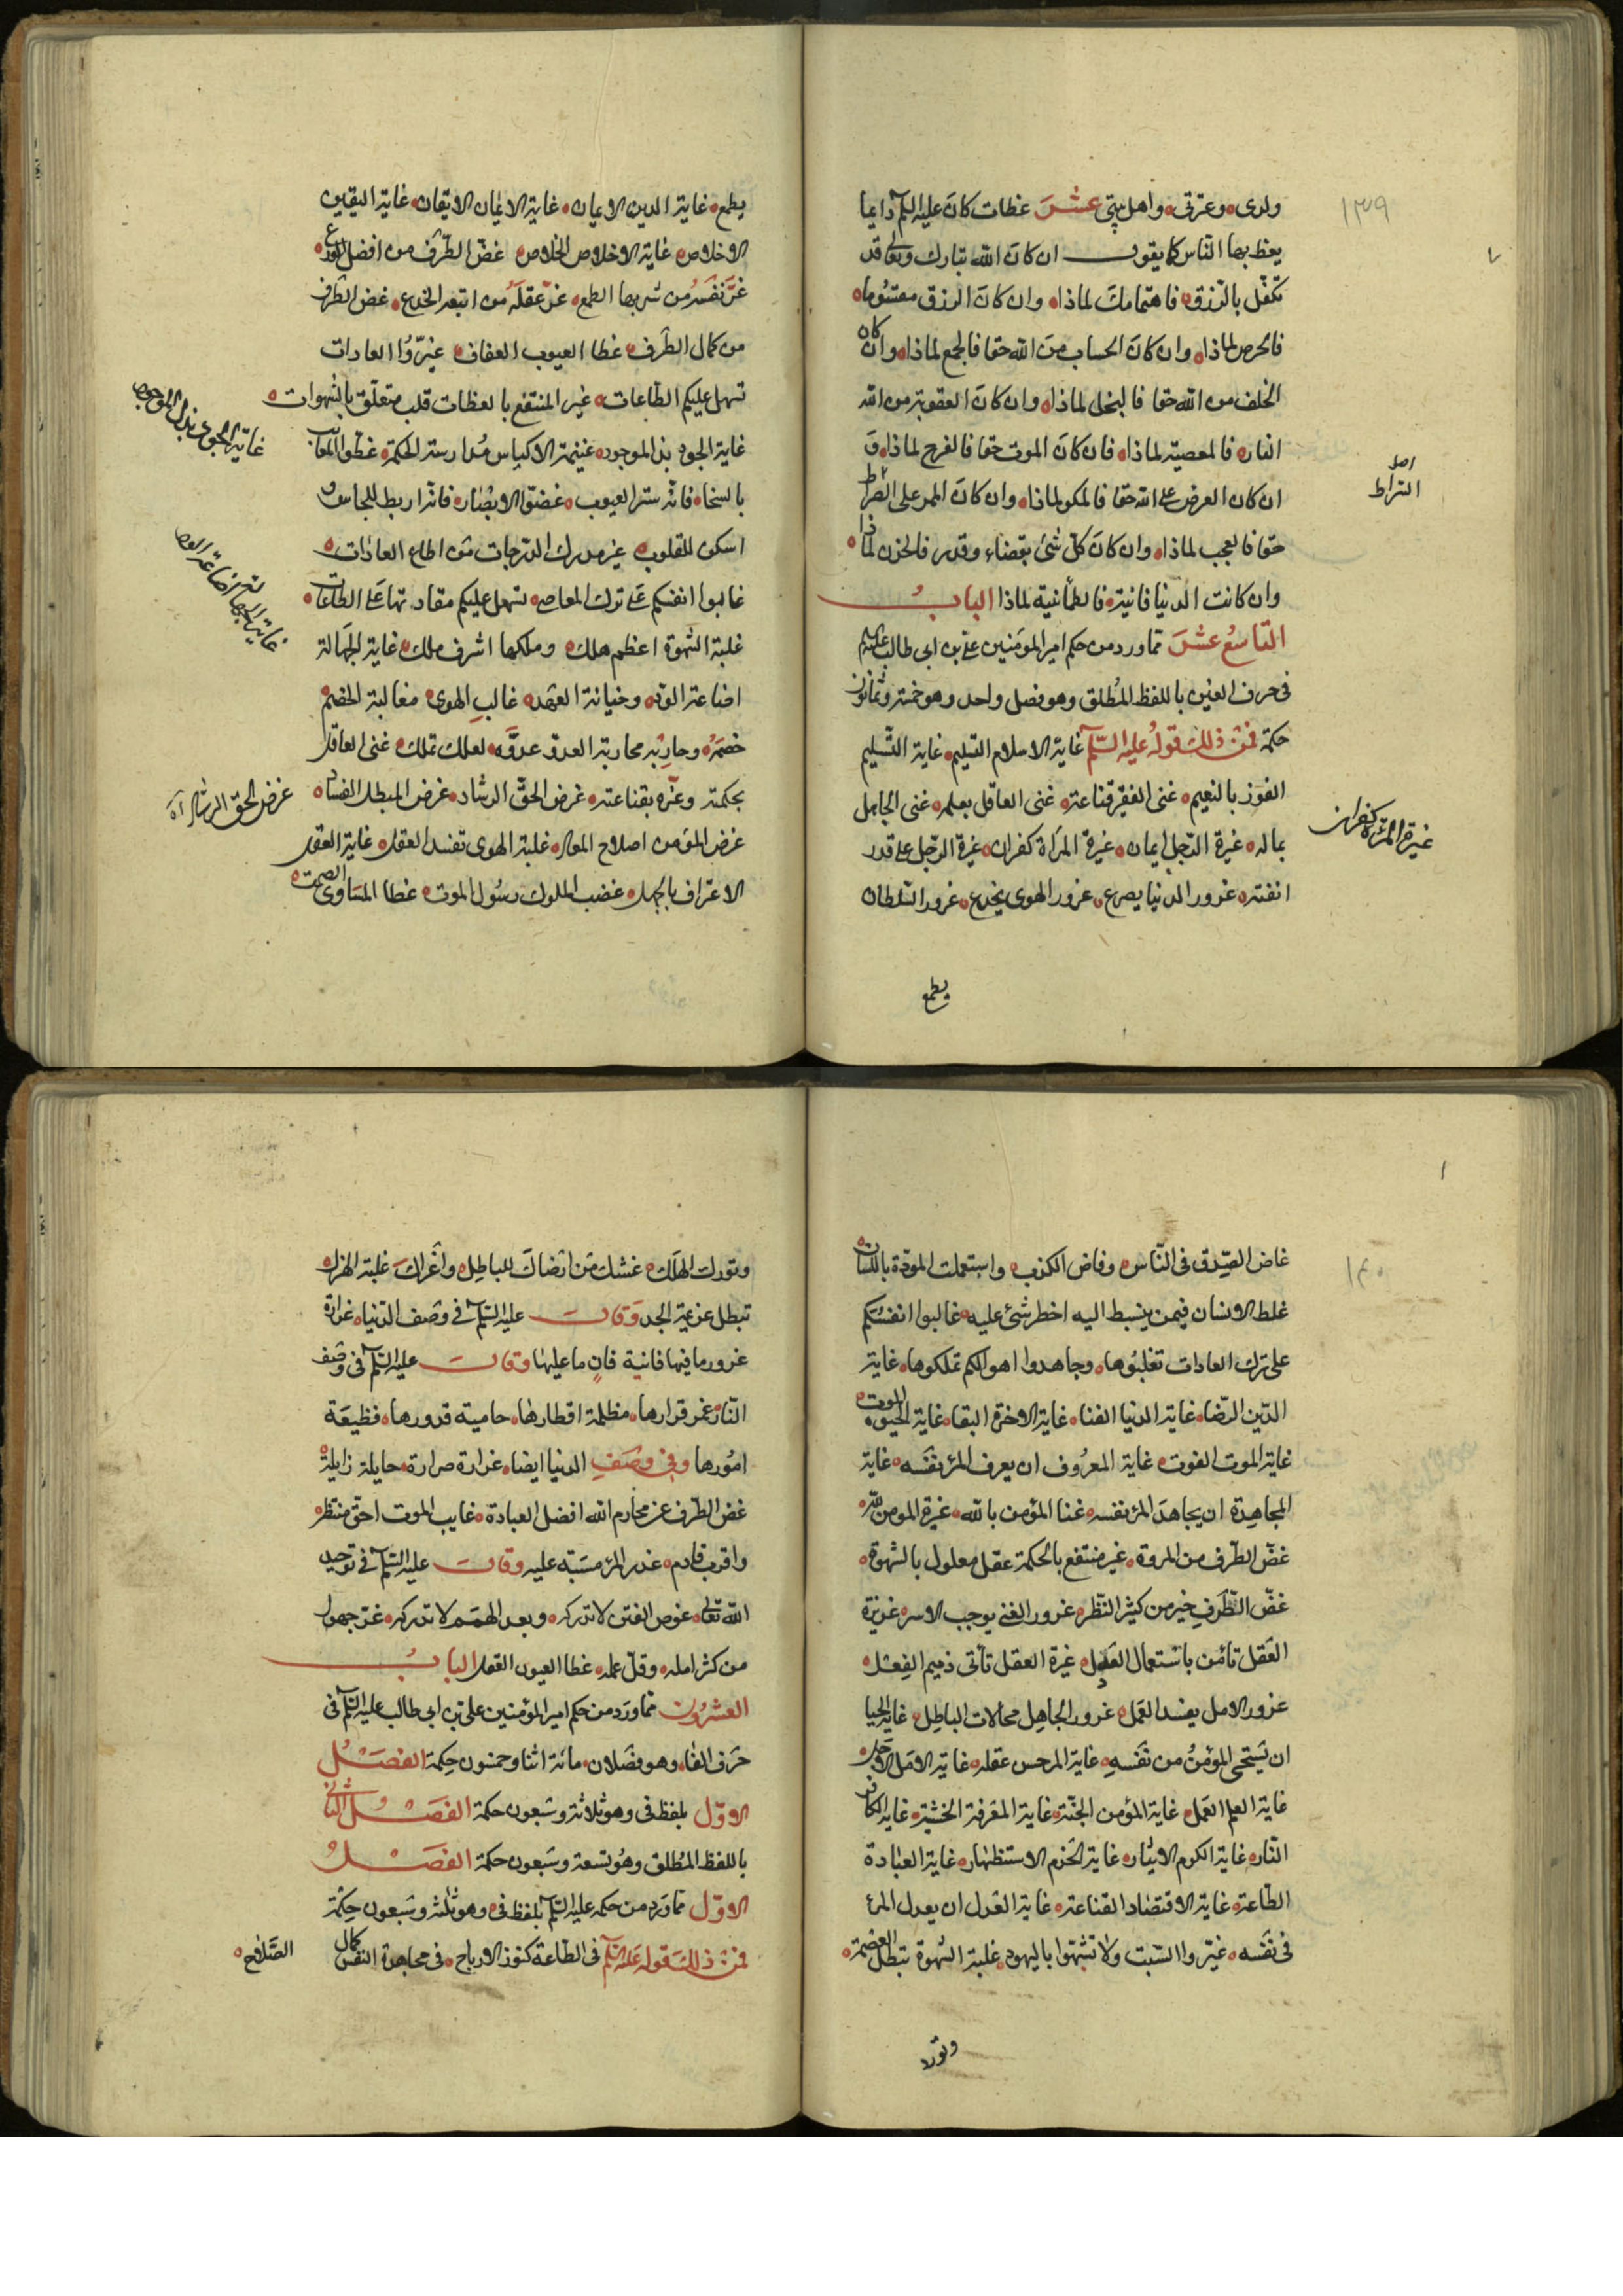 ١٣٩
ولدى وعترتى واهل بيتى عشر عظات كان عليه السلم دايما
يعظ بها الناس كما يقول ان كان الله تبارك وتعالى قد
تكفل بالرزق فاهتمامك لماذا وان كان الرزق مقسوما
فالحرص لماذا وان كان الحساب من الله حقا فالجمع لماذا وان كان
الخلف من الله حقا فالبخل لماذا وان كان العقوبة من الله
النار فالمعصية لماذا فان كان الموت حقا فالفرح لماذا و
ان كان العرض على الله حقا فالمكر لماذا وان كان الممر على الصراط
حقا فالعجب لماذا وان كان كل شئ بقضاء وقدر فالحزن لماذا
وان كانت الدنيا فانية فالطمأنية لماذا الباب
التاسع عشر مما ورد من حكم امير المؤمنين على بن ابى طالب عليه السلم
فى حرف الغين باللفظ المطلق وهو فصل واحد وهو خمسة وثمانون
حكمة فمن ذلك قوله عليه السلم غاية الاسلام التسليم غاية التسليم
الفوز بالنعيم غنى الفقير قناعته غنى العاقل بعلمه غنى الجاهل
بماله غيرة الرجل ايمان غيرة المرأة كفران غيرة الرجل على قدر
انفته غرور الدنيا يصرع غرور الهوى يخدع غرور الشلطان
غيرة المرئة كفران
يطمع
يطمع غاية الدين الايمان غاية الايمان الايقان غاية اليقين
الاخلاص غاية الاخلاص الخلاص غض الطرف من افضل الورع
غر نفسه من شربها الطمع غر عقله من اتبعه الخدع غض الطرف
من كمال الظرف غطا العيوب العفاف غيروا العادات
تسهل عليكم الطاعات غير المنتفع بالعظات قلب متعلق بالشهوات
غاية الجود بذل الموجود غنيمة الاكياس مدارسة الحكمة غطوا المعايب
بالسخا فانه ستر العيوب غضوا الابصار فانه اربط للجاش و
اسكن للقلوب غير مدرك الدرجات من اطاع العادات
غالبوا انفسكم على ترك المعاصى تسهل عليكم مقادتها على الطاعات
غلبة الشهوة اعظم هلك وملكها اشرف ملك غاية الجهالة
اضاعة الود وخيانة العهد غالب الهوى مغالبة الخصم
خصمه وحاربه محاربة العدو عدوه لعلك تملك غنى العاقل
بحكمته وعزه بقناعته غرض الحق الرشاد غرض المبطل الفساد
غرض المؤمن اصلاح المعاد غلبة الهوى تفسد العقل غاية العقل
الاعتراف بالجهل غضب الملوك رسول الموت غطا المساوى الصمت
غرض الحق الرشاد
١٤٠
غاض الصدق فى الناس وفاض الكذب واستعملت المودة باللسان
غلط الانسان فيمن ينبسط اليه اخطر شئ عليه غالبوا انفسكم
على ترك العادات تغلبوها وجاهدوا اهوائكم تملكوها غاية
الدين الرضا غاية الدنيا الفنا غاية الاخرة البقا غاية الحيوة الموت
غاية الموت الفوت غاية المعروف ان يعرف المرء نفسه غاية
المجاهدة ان يجاهد المرء نفسه غنا المؤمن بالله غيرة المومن لله
غض الطرف من المروة غير منتفع بالحكمة عقل معلول بالشهوة
غض الطرف خير من كثير النظر غرور الغنى يوجب الاسر غريزة
العقل تأمن باستعمال العدل غيرة العقل تأتى ذميم الفعل
غرور الامل يفسد العمل غرور الجاهل محالات الباطل غاية الحيا
ان يستحى المؤمن من نفسه غاية المر حسن عقله غاية الامل الاجل
غاية العلم العمل غاية المؤمن الجنة غاية المعرفة الخشية غاية الكافر
النار غاية الكرم الايثار غاية الحزم الاستظهار غاية العبادة
الطاعة غاية الاقتصاد القناعة غاية العدل ان يعدل المرء
فى نفسه غيروا الشيب ولا تشبهوا باليهود غلبة الشهوة تبطل العصمة
وتورد
وتورد الهلك غشك من ارضاك للباطل واغراك غلبة الهزل
تبطل عزيمة الجد وقال عليه السلم فى وصف الدنيا غرارة
غرور ما فيها فانية فان ما عليها وقال عليه السلم فى وصف
النار غمر قرارها مظلمة اقطارها حامية قدورها فظيعة
امورها وفى وصف الدنيا ايضا غرارة ضرارة حايلة زايلة
غض الطرف عن محارم الله افضل العبادة غايب الموت احق منتظر
واقرب قادم غدر المرء مسبة عليه وقال عليه السلم فى توحيد
الله تعالى غوص الفتن لا تدركه وبعد الهمم لا تدركه غر جهول
من كثر امله وقل عمله غطا العيون العقل الباب
العشرون مما ورد من حكم امير المؤمنين على بن ابى طالب عليه السلم فى
حرف الفا وهو فصلان مائة اثنا وخمسون حكمة الفصل
الاول بلفظ فى وهو ثلاثة وسبعون حكمة الفصل الثانى
باللفظ المطلق وهو تسعة وسبعون حكمة الفصل
الاول مما ورد من حكمه عليه السلم بلفظ فى وهو ثلثة وسبعون حكمة
فمن ذلك قوله عليه السلم فى الطاعة كنوز الارباح فى مجاهدة النفس كمال الصلاح